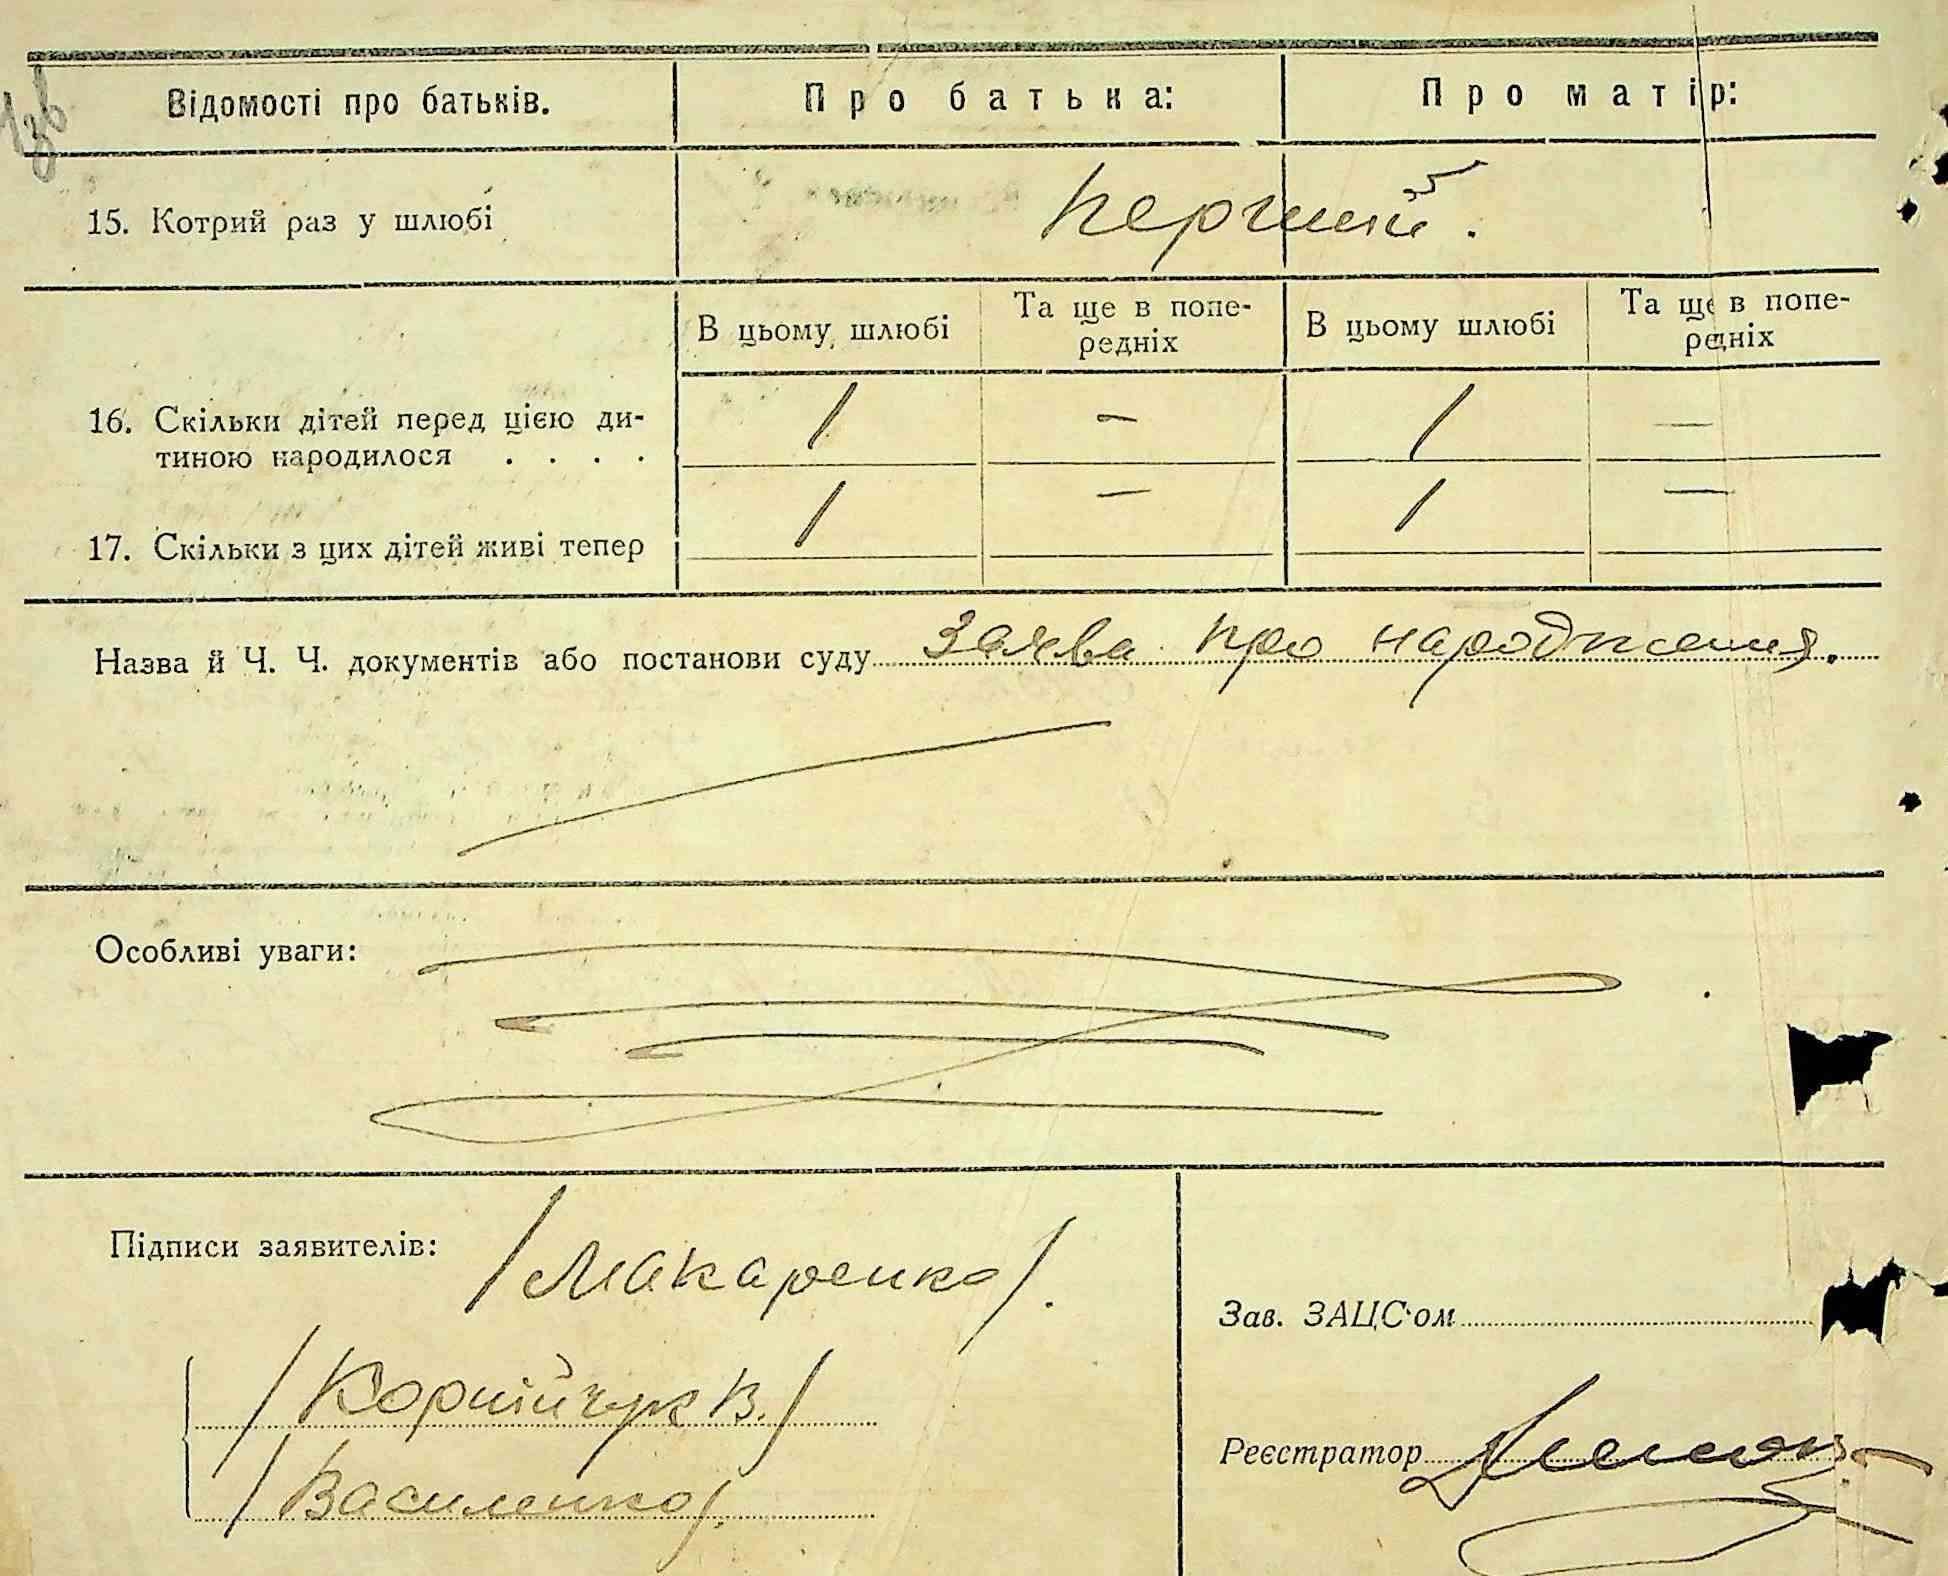 Відомості про батьків. Про батька: Про матір:
15. Котрий раз у шлюбі перший.
В цьому шлюбі Та ще в попе-
редніх В цьому шлюбі Та ще в попе-
редніх
16. Скільки дітей перед цією ди-
тиною народилося . . . . 1 — 1 —
17. Скільки з цих дітей живі тепер 1 — 1 —
Назва й Ч. Ч. документів або постанови суду заява про народження.
Особливі уваги:
Підписи заявителів: /Макаренко/.
/Корнійчук В./
/Василенко/.
Зав. ЗАЦС'ом
Реєстратор